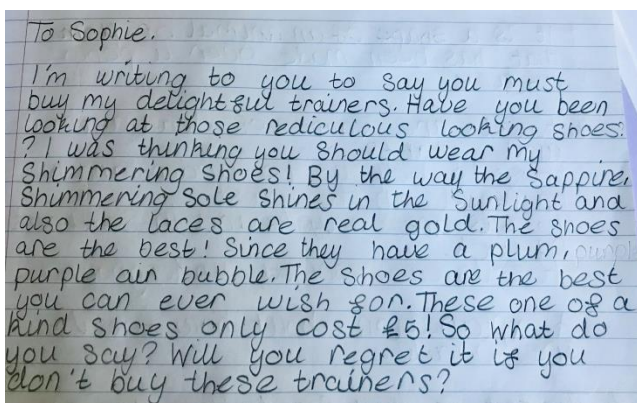 To Sophie.
I'm writing to you to say you must
buy my delightful trainers. Have you been
looking at those rediculous looking shoes.
? I was thinking you should wear my
Shimmering Shoes! By the way the Sappire,
Shimmering Sole Shines in the Sunlight and
also the laces are real gold. The shoes
are the best! Since they have a plum,
purple air bubble. The Shoes are the best
you can ever wish for. These one of a
kind shoes only cost £5! So what do
you say? Will you regret it if you
don't buy these trainers?